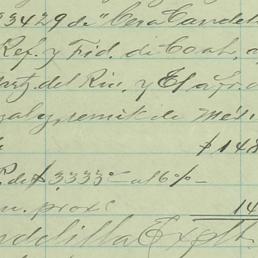 33429 de "Cera Candel
Ref. y Fid. de Coah, a
Martz del Rio, y El afr. a
y remit de Méj.
$148
P. de $3333⁰⁰ al 6%
n. prox
14
ndelilla Explt